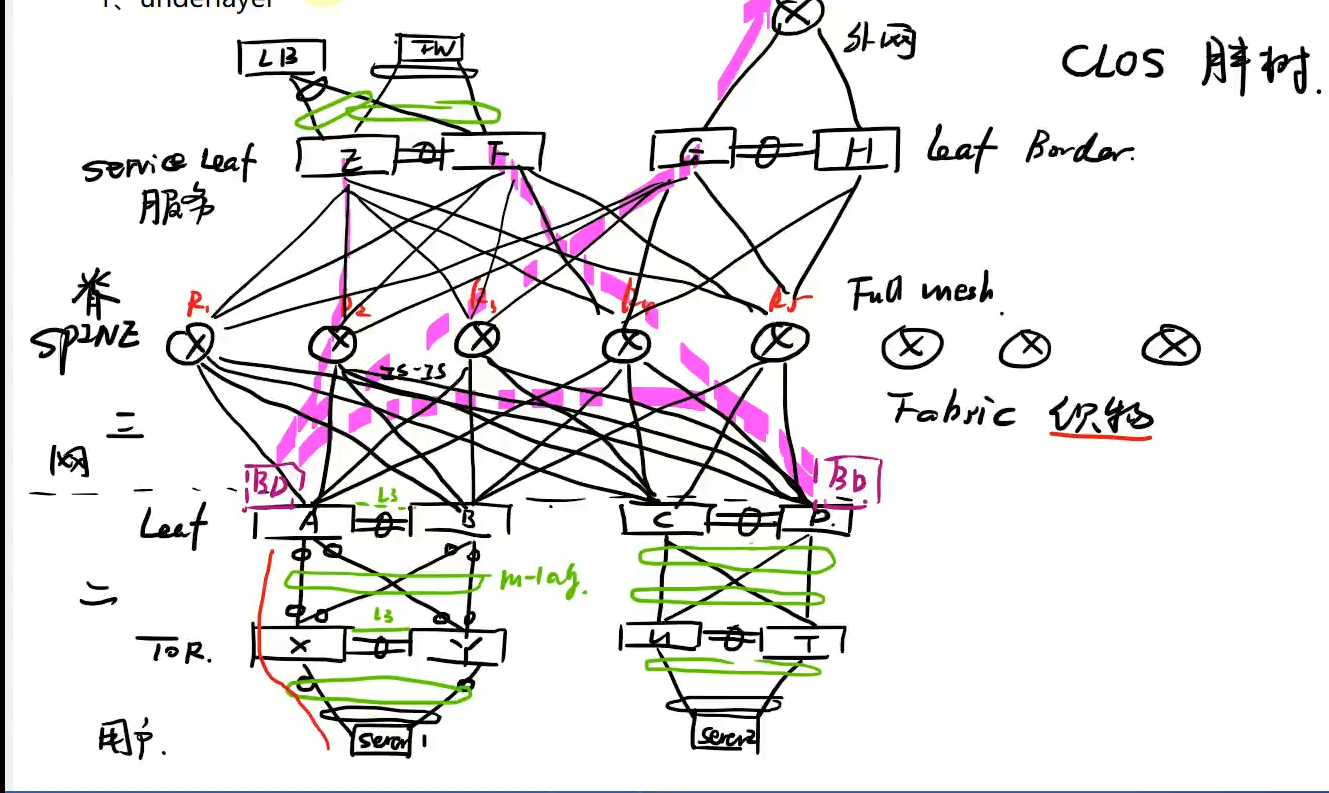 1、underlayer
LB
FW
外网
CLOS 胖树.
service Leaf
服务
Z
F
G
H
Leaf Border.
脊
SPINE
R1
R2
R3
R4
R5
Full mesh.
IS-IS
Fabric 织物
三
网
BD
BD
Leaf
A
L3
B
C
D.
二
m-lag.
TOR.
X
L3
Y
U
T
用户.
server1
server2